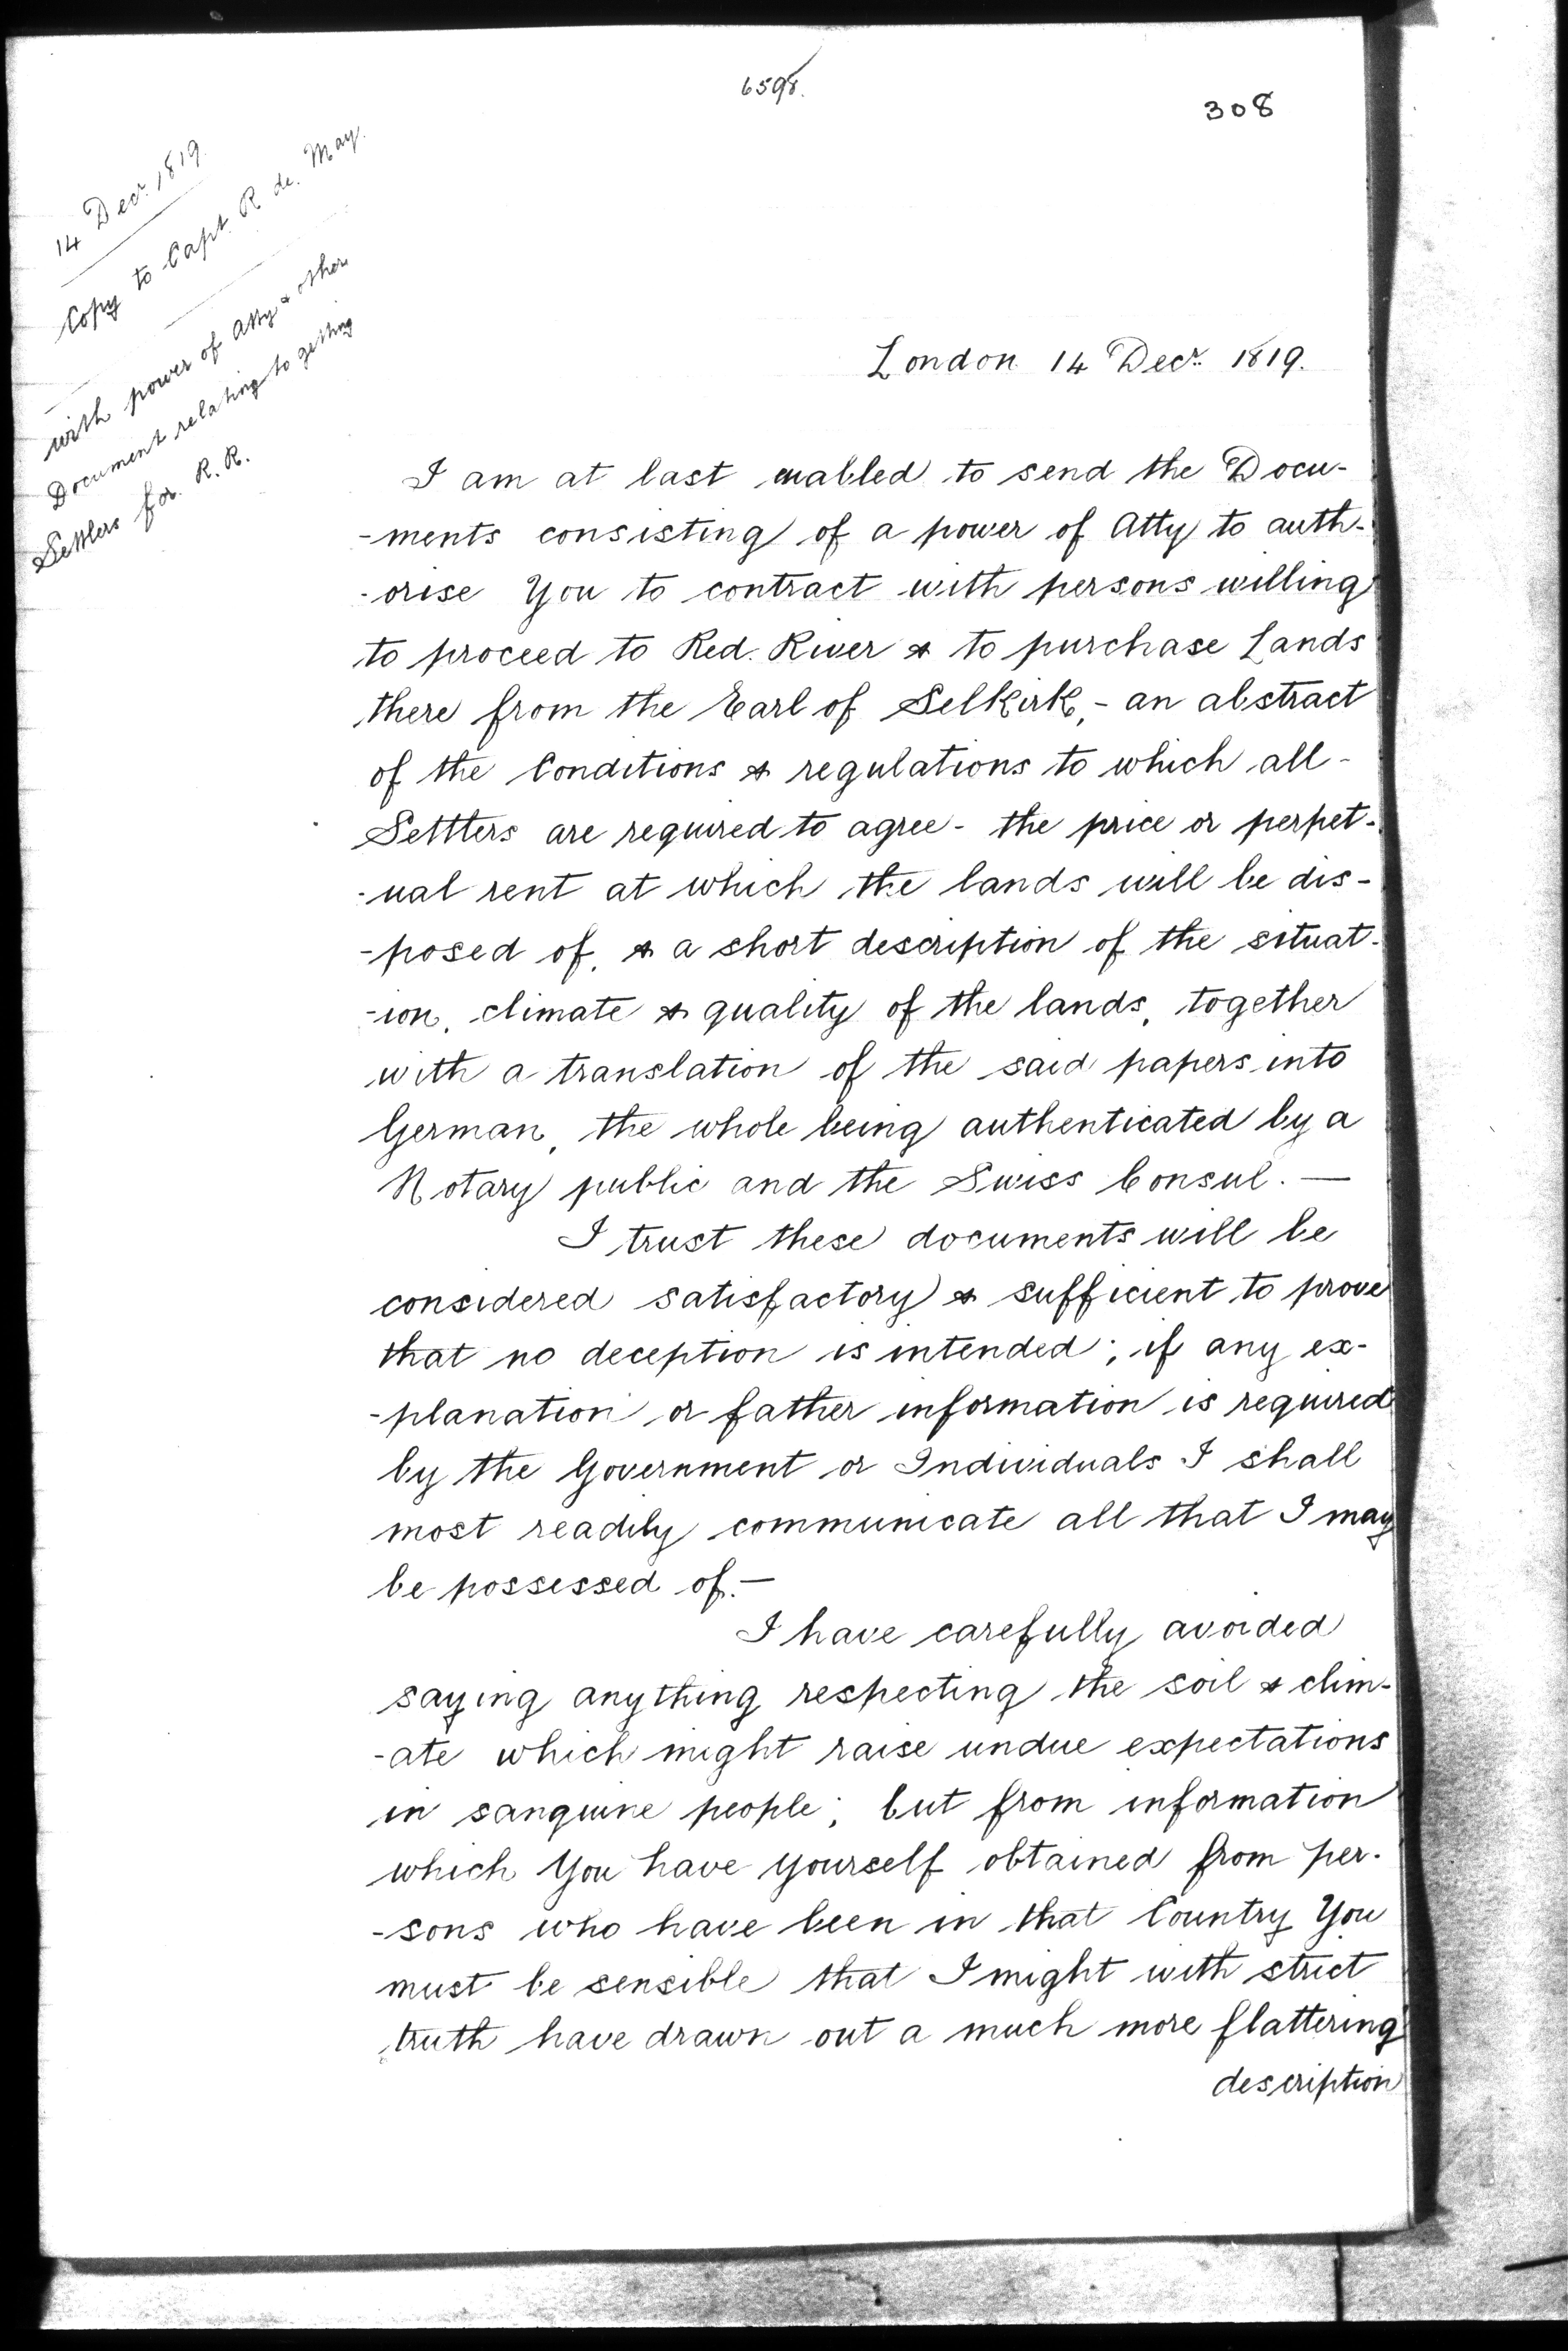 6598.
308
14 Decr. 1819.
Copy to Capt. R de. May.
with power of Atty & other
Document relating to getting
Settlers for R. R.
London 14 Decr. 1819.
I am at last enabled to send the Docu-
-ments consisting of a power of Atty to auth-
-orise You to contract with persons willing
to proceed to Red. River & to purchase Lands
there from the Earl of Selkirk, - an abstract
of the Conditions & regulations to which all -
Settlers are required to agree - the price or perpet-
-ual rent at which the lands will be dis-
-posed of, & a short description of the situat-
-ion, climate & quality of the lands, together
with a translation of the said papers into
German, the whole being authenticated by a
Notary public and the Swiss Consul. —
I trust these documents will be
considered satisfactory & sufficient to prove
that no deception is intended; if any ex-
-planation or father information is required
by the Government or Individuals I shall
most readily communicate all that I may
be possessed of. —
I have carefully avoided
saying anything respecting the soil & clim-
-ate which might raise undue expectations
in sanguine people; but from information
which You have yourself obtained from per-
-sons who have been in that Country You
must be sensible that I might with strict
truth have drawn out a much more flattering
description